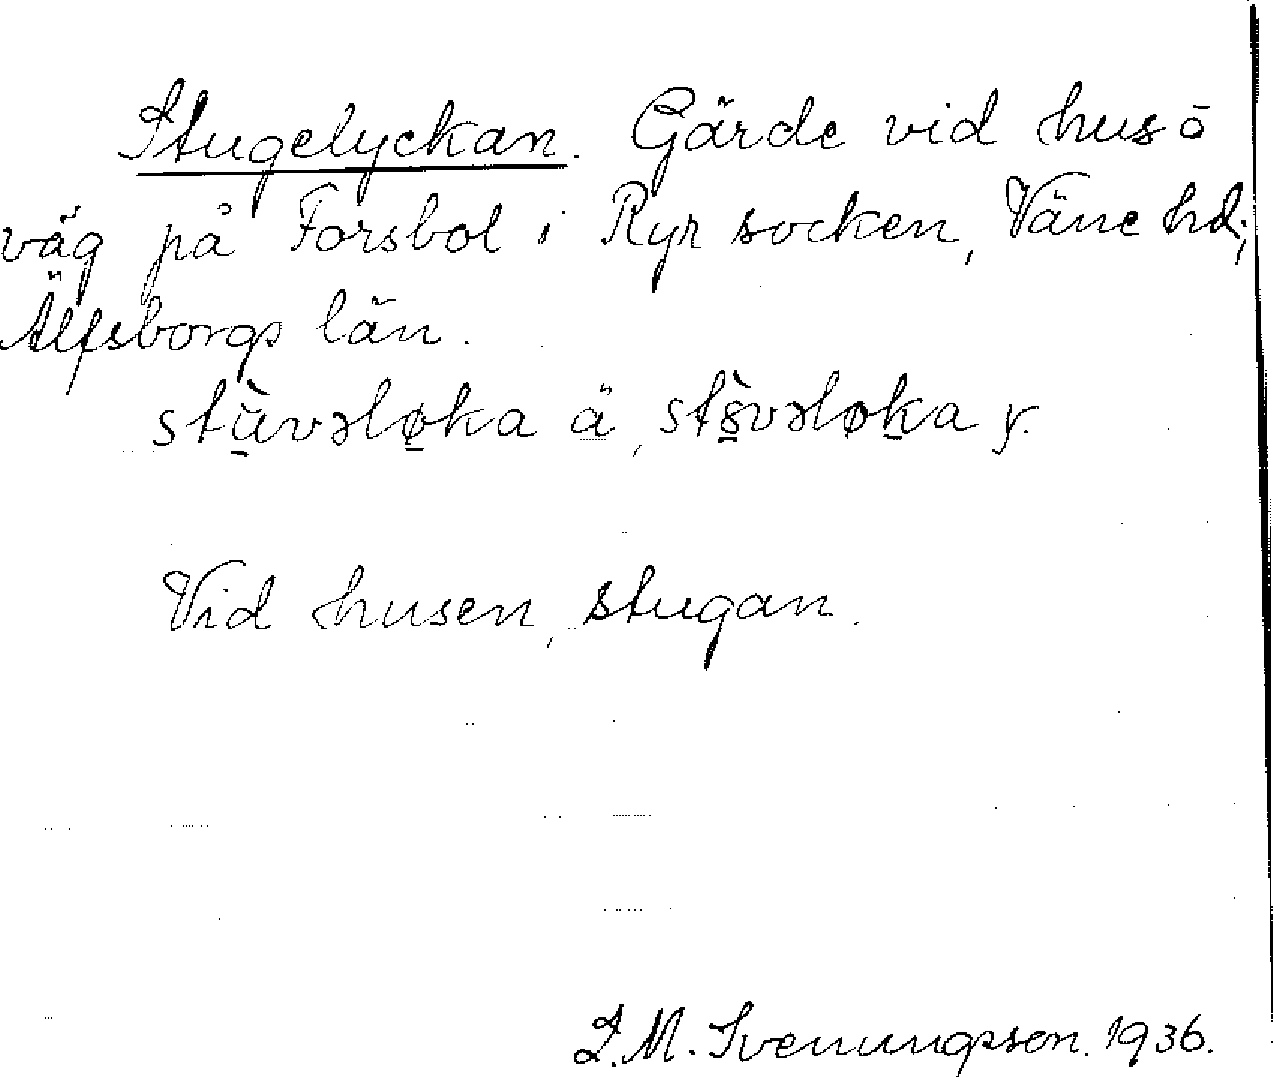 Stugelyckan. Gärde vid hus o
väg på Forsbol i Ryr socken, Väne hd,
Älfsborgs län.
stùvəløka ä, stòvəløka y.
Vid husen, stugan.
L.M. Svenungsson. 1936.